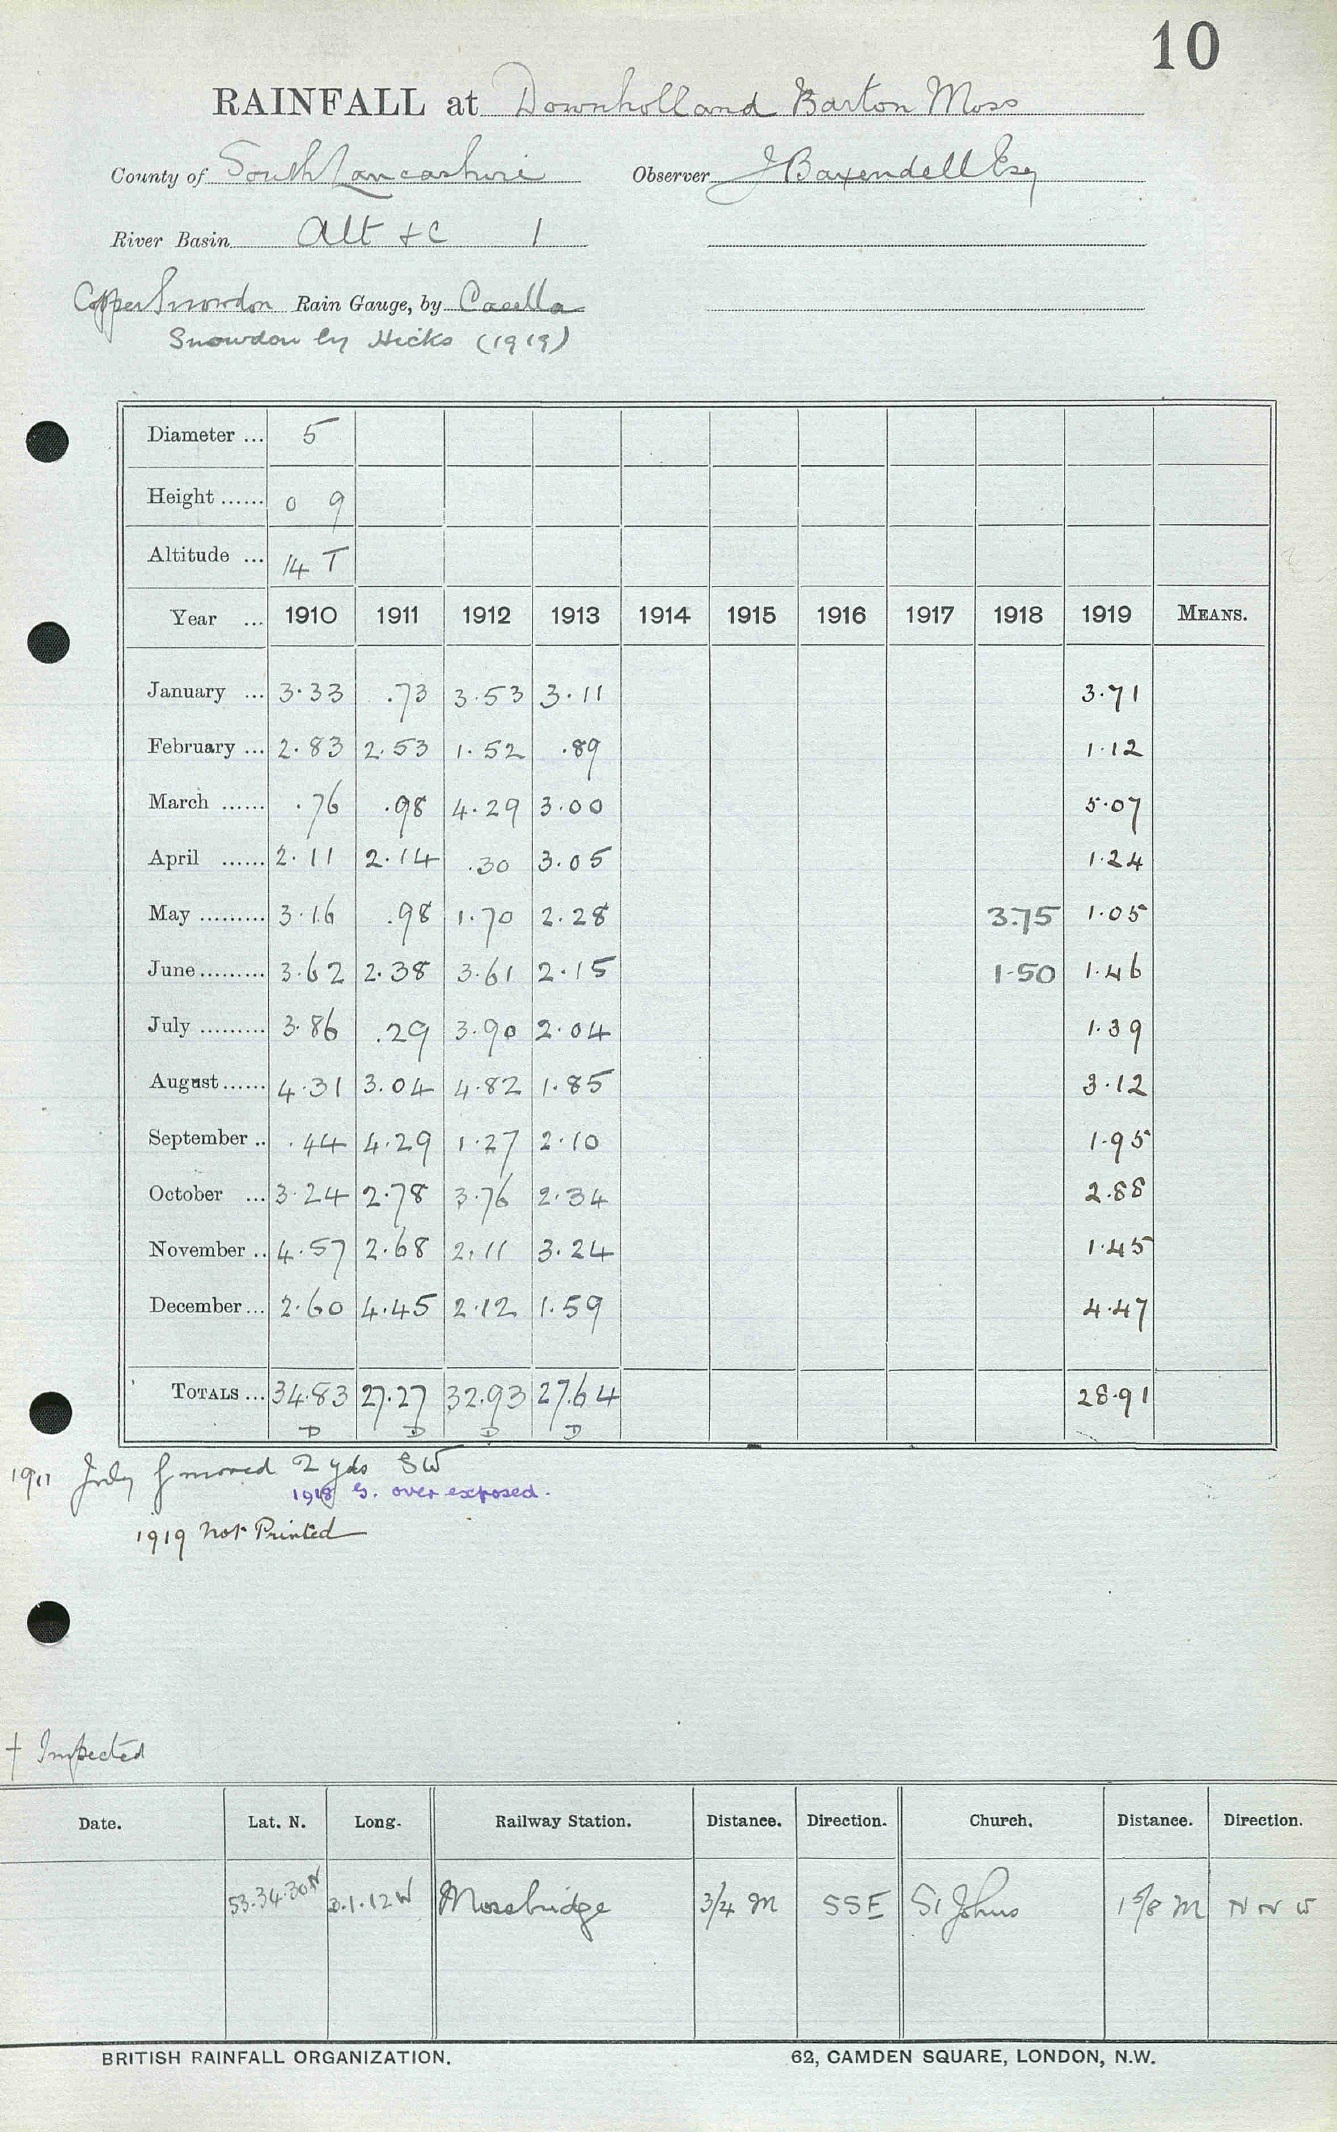 10
RAINFALL at Downholland Barton Moss
County of South Lancashire Observer J Baxendell Esq
River Basin Alt &c 1
Copper Snowdon Rain Gauge, by Casella
Snowdon by Hicks (1919)
Diameter ... 5
Height ...... 0 9
Altitude ... 14 T
Year ... 1910 1911 1912 1913 1914 1915 1916 1917 1918 1919 MEANS.
January ... 3.33 .73 3.53 3.11 3.71
February ... 2.83 2.53 1.52 .89 1.12
March ...... .76 .98 4.29 3.00 5.07
April ...... 2.11 2.14 .30 3.05 1.24
May ......... 3.16 .98 1.70 2.28 3.75 1.05
June ......... 3.62 2.38 3.61 2.15 1.50 1.46
July ......... 3.86 .29 3.90 2.04 1.39
August ...... 4.31 3.04 4.82 1.85 3.12
September .. .44 4.29 1.27 2.10 1.95
October ... 3.24 2.78 3.76 2.34 2.88
November .. 4.57 2.68 2.11 3.24 1.45
December ... 2.60 4.45 2.12 1.59 4.47
TOTALS ... 34.83 27.27 32.93 27.64 28.91
D D D D
1911 July g moved 2 yds SW
1918 G. over exposed.
1919 Not Printed
† Inspected
Date. Lat. N. Long. Railway Station. Distance. Direction. Church. Distance. Direction.
53.34.30N 3.1.12W Mossbridge 3/4 M SSE St Johns 1 5/8 M N N W
BRITISH RAINFALL ORGANIZATION. 62, CAMDEN SQUARE, LONDON, N.W.